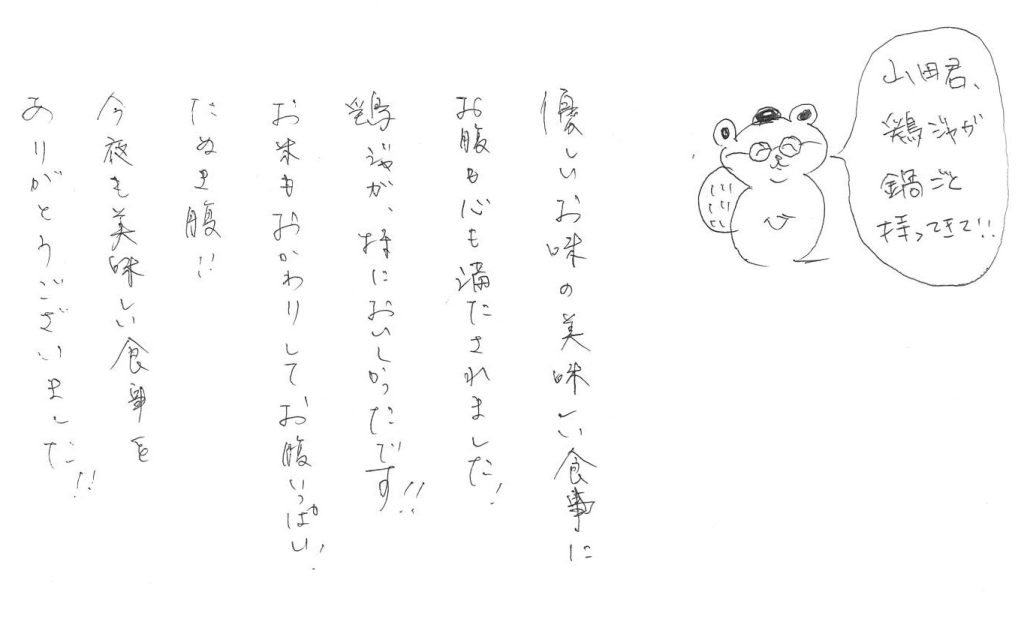 山田君、
鶏ジャガ
鍋ごと
持ってきて!!
優しいお味の美味しい食事に
お腹も心も満たされました!
鶏ジャガ、特においしかったです!!
お米もおかわりしてお腹いっぱい!
たぬき腹!!
今夜も美味しい食事を
ありがとうございました!!